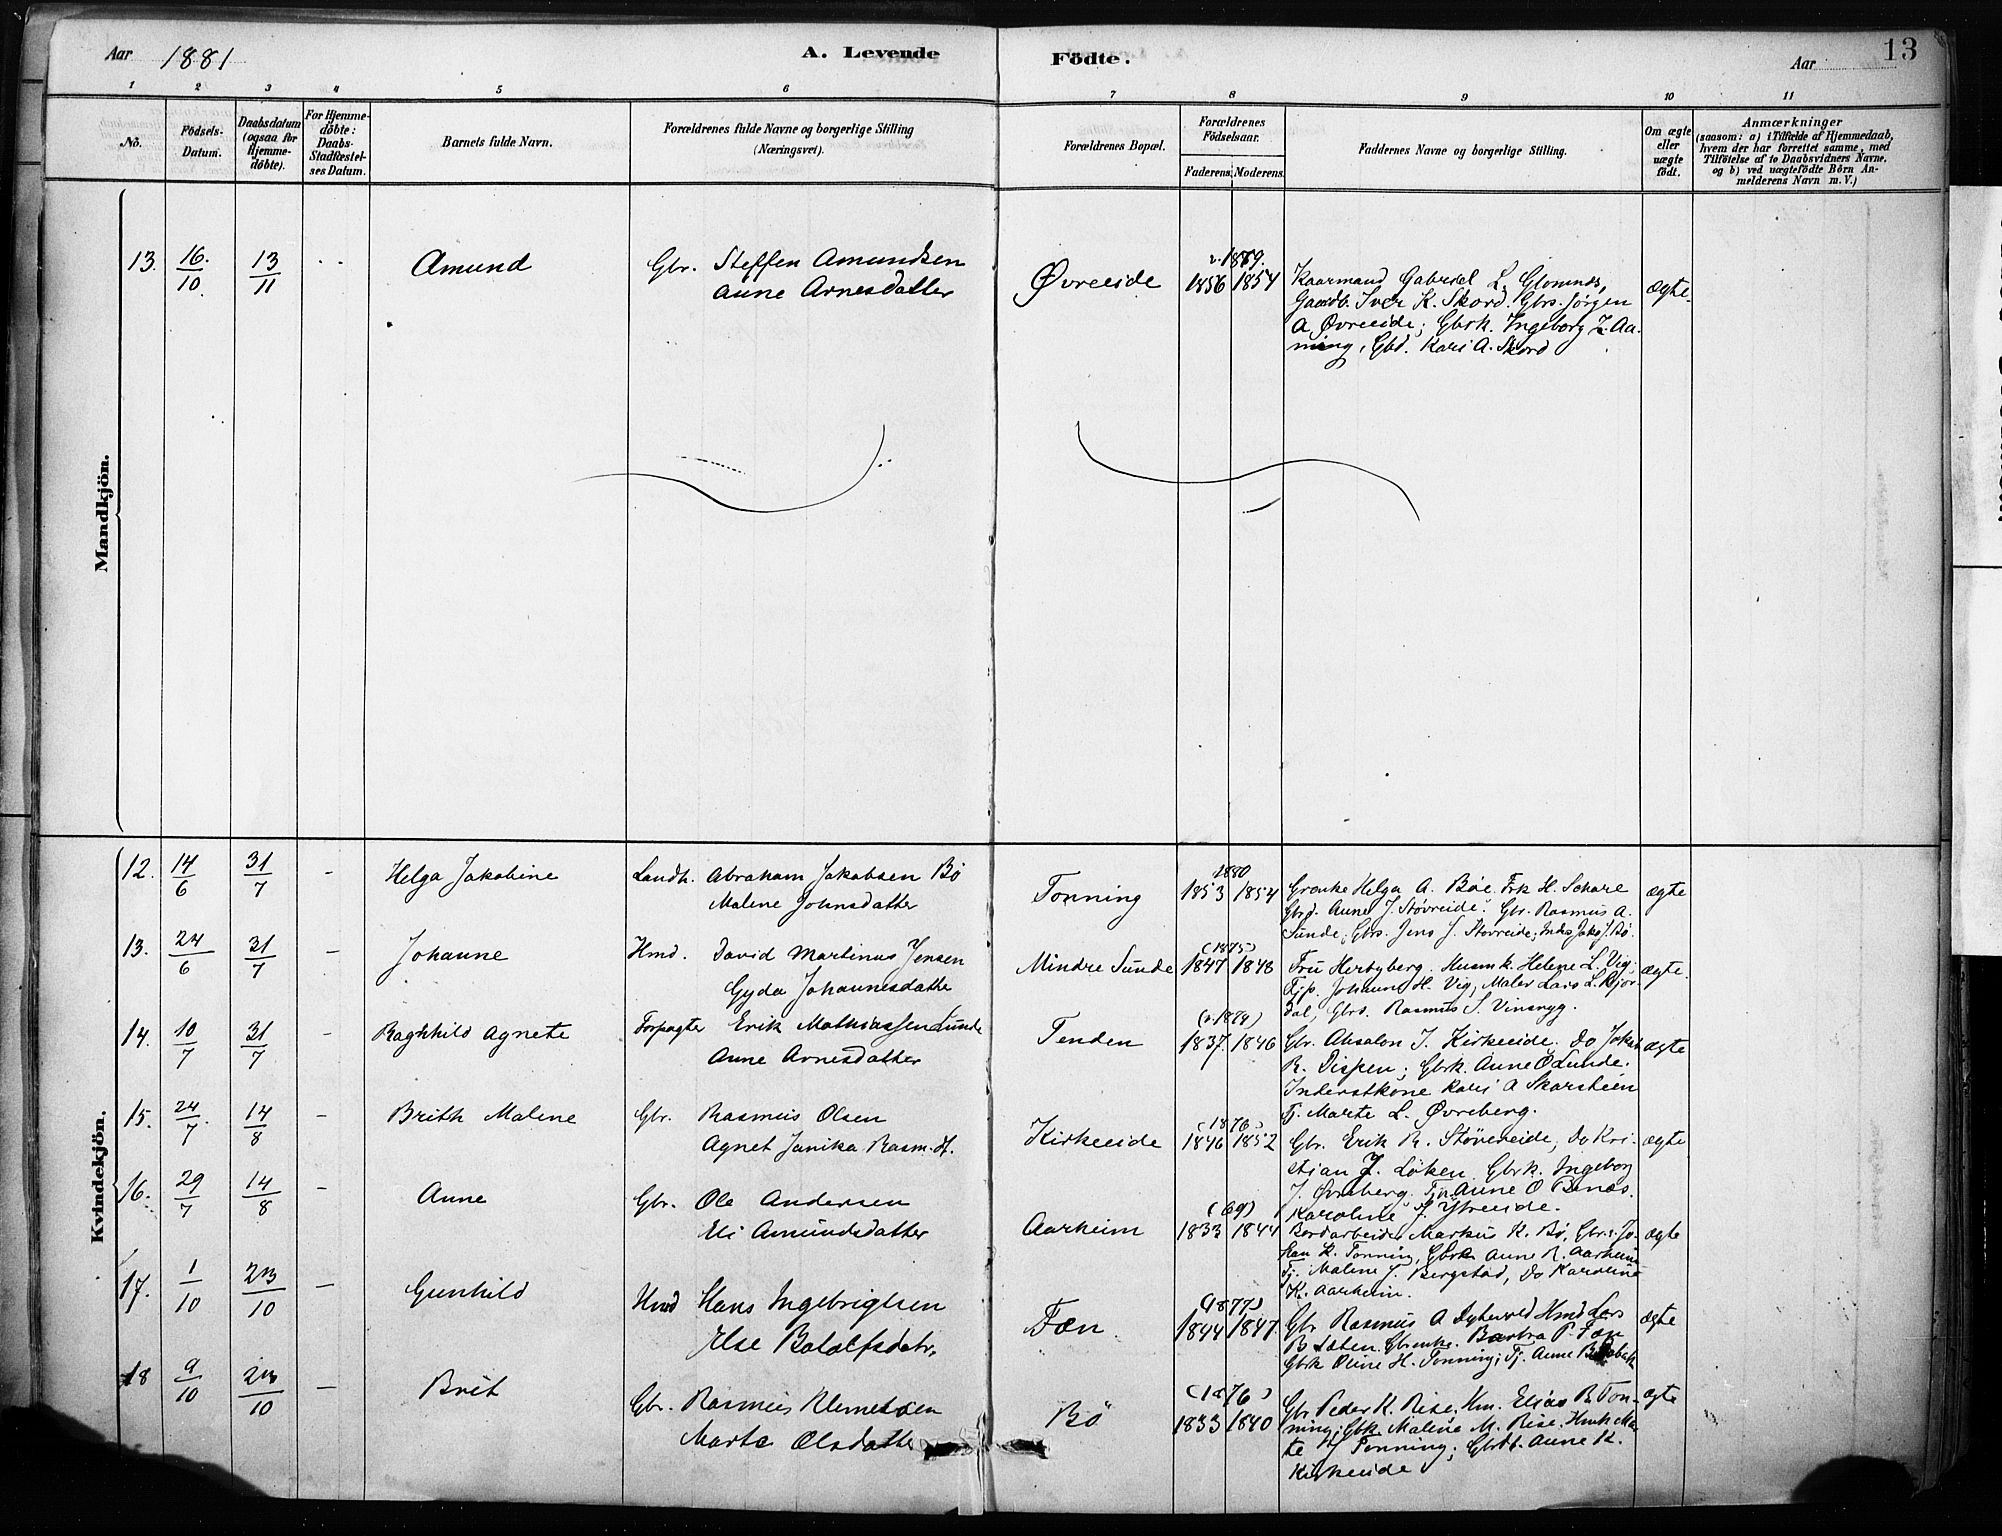 Aar 1881
A. Levende Födte.
Aar
13
1 2 3 4 5 6 7 8 9 10 11
No.
Födsels-Datum.
Daabsdatum (ogsaa for Hjemme-döbte).
For Hjemme-döbte: Daabs-Stadfæstel-ses Datum.
Barnets fulde Navn.
Forældrenes fulde Navne og borgerlige Stilling (Næringsvei).
Forældrenes Bopæl.
Forældrenes Födselsaar.
Faderens. Moderens.
Faddernes Navne og borgerlige Stilling.
Om ægte eller uægte födt.
Anmærkninger
(saasom: a) i Tilfælde af Hjemmedaab,
hvem der har forrettet samme, med
Tilföielse af to Daabsvidners Navne.
og b) ved uægtefödte Börn An-
melderens Navn m. V.)
Mandkjön.
13. 16/10 13/11 Amund
Gbr. Steffen Amundsen
Anne Arnesdatter
Øvreeide
1856 1854
Kaarmand Gabriel L. Glomnes,
Gaardb. Iver K. Skord. Gbrs. Jørgen
A. Øvreeide; Gbrk. Ingeborg Z. Aa-
ning, Gbd. Kari A. Skord
ægte
Kvindekjön.
12. 14/6 31/7 - Helga Jakobine
Landh. Abraham Jakobsen Bö
Malene Johnsdatter
Tonning
1880
1853 1854
Helga A. Böe. Frk H.
Gbrd. Anne J. Støvreide. Gbr. Rasmus A.
Sunde; Gbrs. Jens J. Stovreide; Jak. J. Bö.
ægte
13. 24/6 31/7 - Johanne
Hmd. David Martinus Jensen
Gyda Johannesdatter
Mindre Sunde
(1875)
1847 1848
Fru Hertzberg. Husmk. Helene L. Vig;
Johanne H. Vig, Maler Lars L.
dal, Gbrs. Rasmus S. Vinsryg.
ægte
14. 10/7 31/7 - Raghhild Agnete
Forpagter Erik Mathiassen Lunde
Anne Arnesdatter
Tenden
(v. 1874)
1837. 1846
Gbr. Absalon J. Kirkeeide. Do Jakob
R. Dispen; Gbrk. Anne O Lunde.
Inderstkone Kari A Skarstein
Tj. Marte L. Øvreberg.
ægte
15. 24/7 14/8 - Brith Malene
Gbr. Rasmus Olsen
Agnet Janika Rasm. dt.
Kirkeeide
(1876)
1846 1852
Gbr. Erik R. Støvereide, Do Kri-
stian Z. Löken. Gbrk. Ingeborg
J. Øvreberg. Anne O
Karoline J. Ytreeide.
ægte
16. 29/7 14/8 - Anne
Gbr. Ole Andersen
Eli Amundsdatter
Aarheim
(69)
1833 1844
Bordarbeider Markus K. Bö, Gbrs. Jo-
han K. Tonning, Gbrk Anne R. Aarheim
Tj. Malene J. Bergstad, Do Karoline
K. Aarheim.
ægte
17. 1/10 23/10 - Gunhild
Hmd Hans Ingebrigtsen
Else Botolfsdatr.
Fæn.
(1877)
1844 1847.
Gbr Rasmus A Hmd Lars
R Barbra P. Fæn
Gbrk Oline H. Tonning; Tj. Anne
ægte
18 9/10 23/10 - Brit
Gbr. Rasmus Klemetsen
Marte Olsdatter
Bö
(1876)
1833 1840
Gbr. Peder K. Rise. Hm. Elias R. Ton-
ning; Gbk. Malene M. Rise. Hmk Ma-
te Tonning; Gbrdt. Anne K.
Kirkeeide
ægte